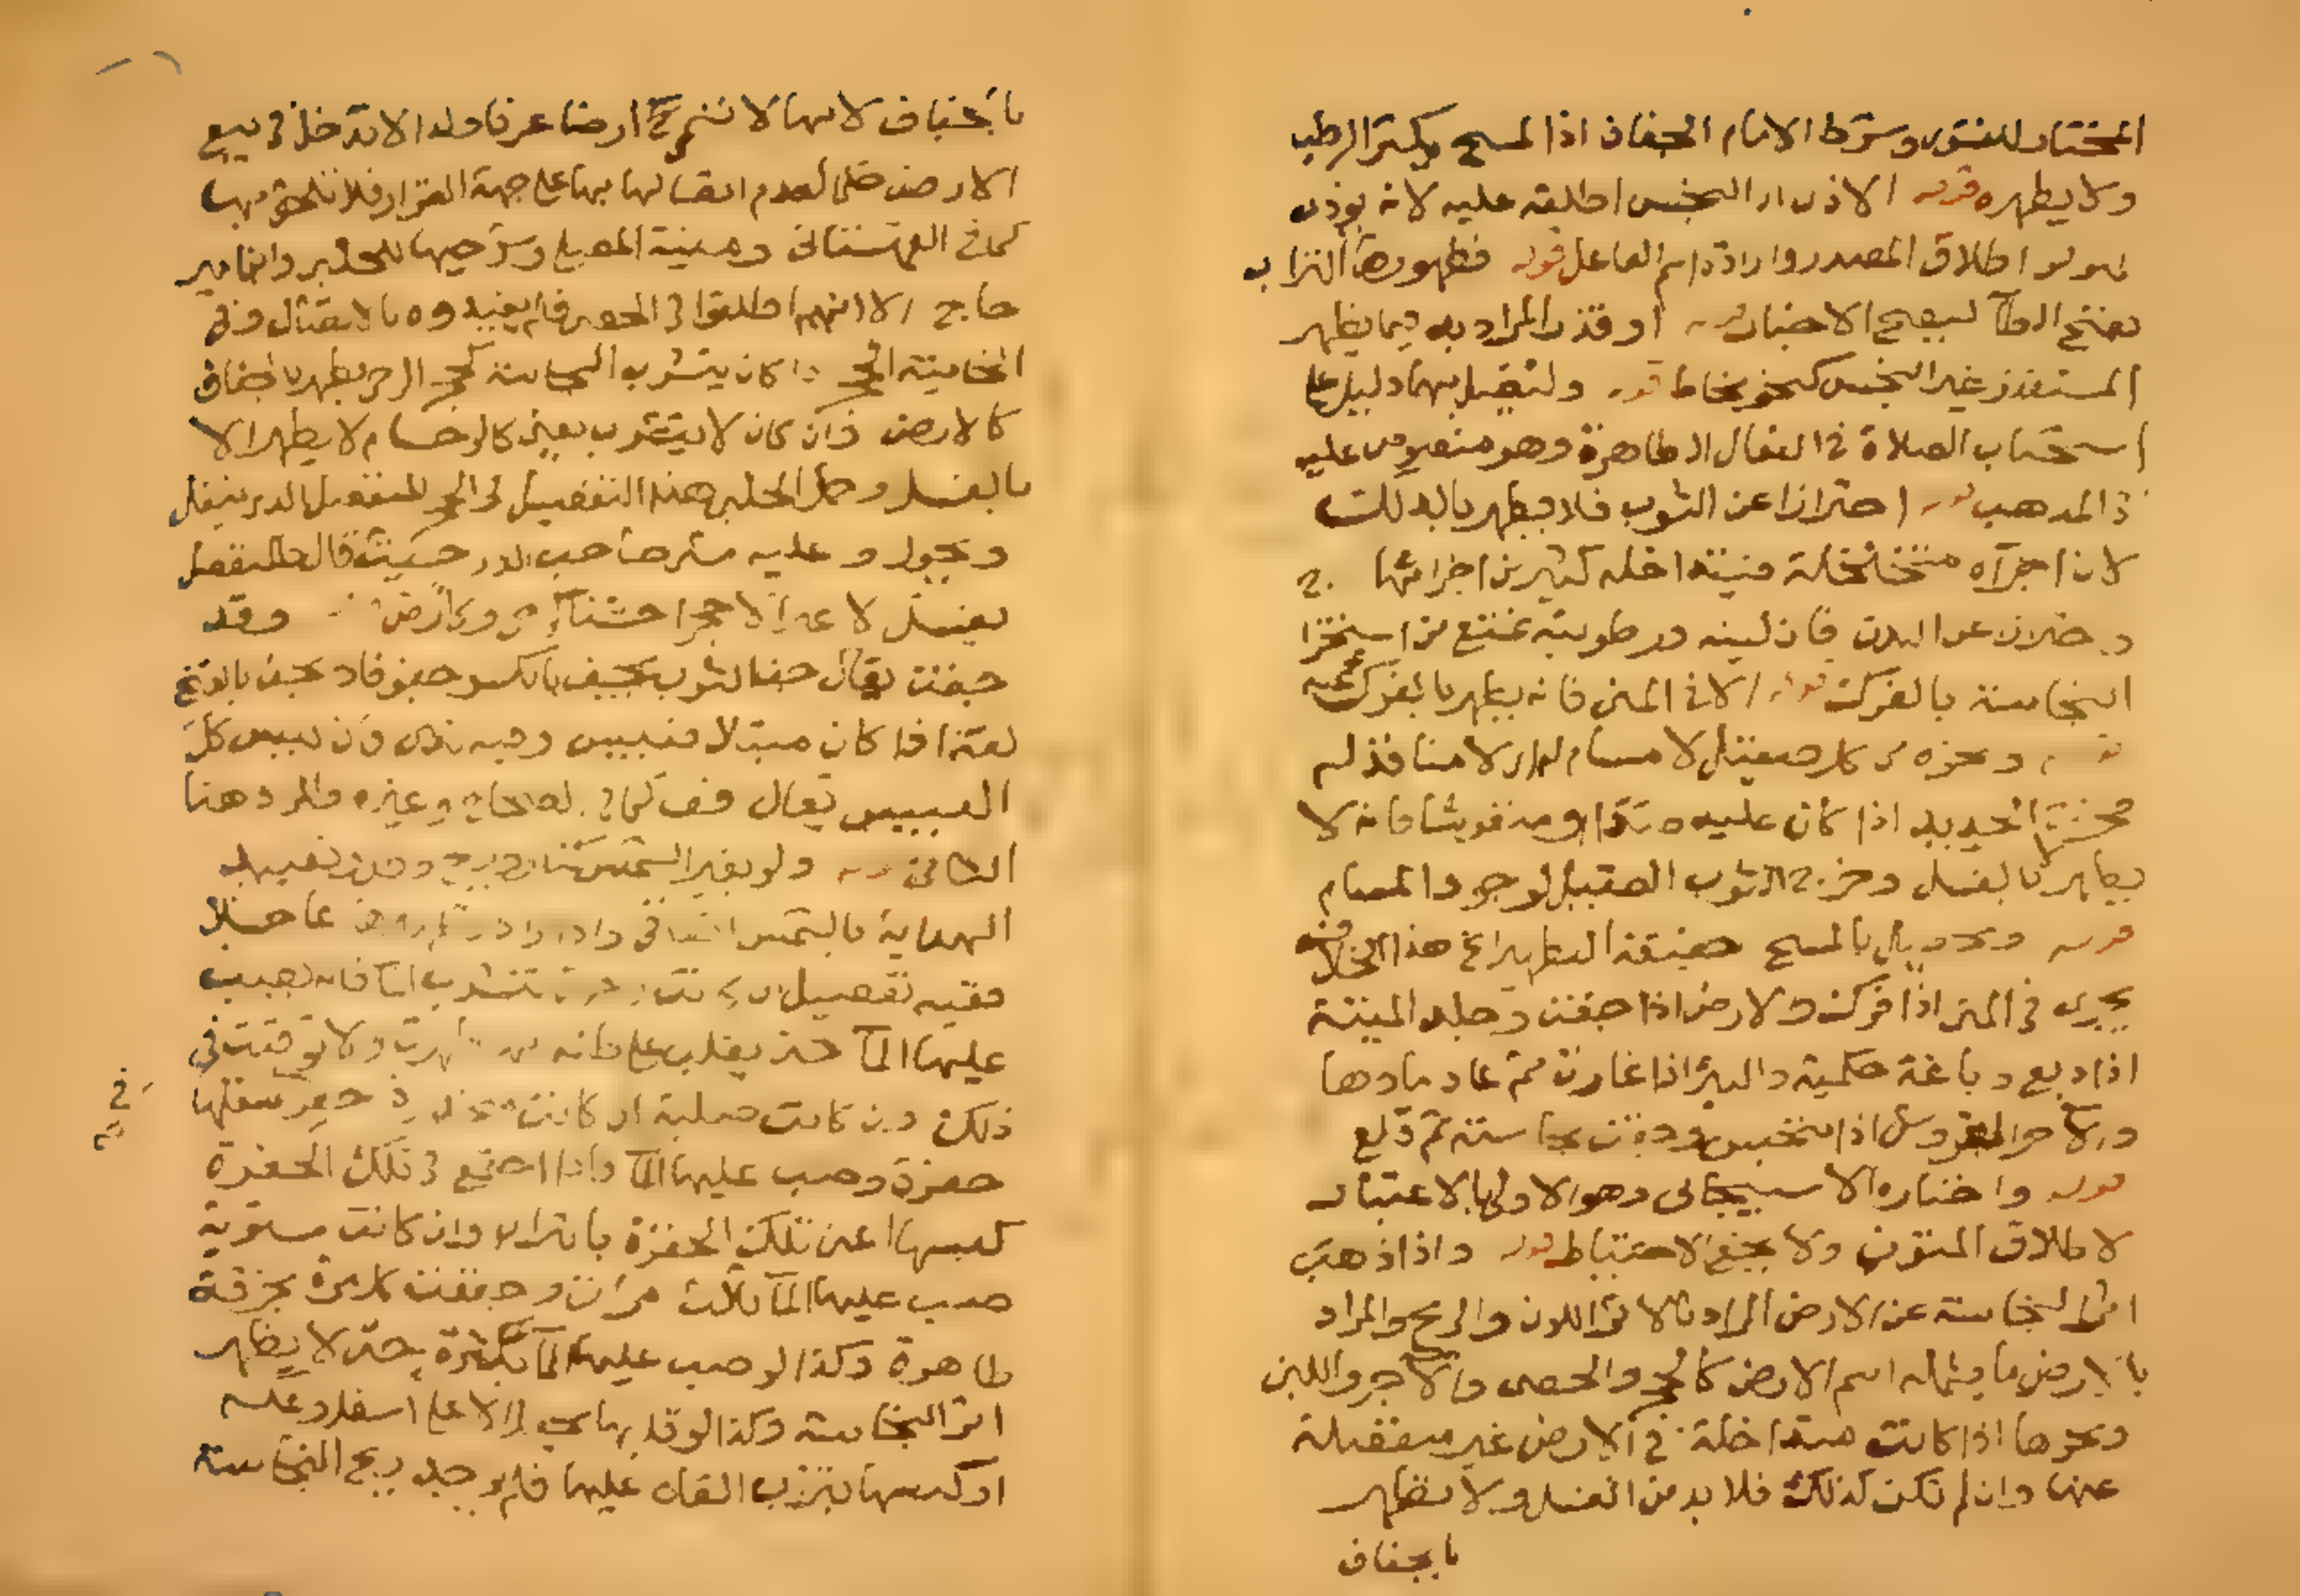 المختار للفتوى وشرط الامام الجفاف اذا لمسح ويكثر الرطب
ولا يطهره قوله الاذى اي النجس اطلقه عليه لانه يوذى
فهو من اطلاق المصدر وارادة اسم الفاعل قوله فطهورها التراب
بفتح الطآ ليصح الاخبار قوله او قذرا المراد به فيما يظهر
المستقذر غير النجس كنحو مخاط قوله وليصل بهما دليل على
استحباب الصلاة في النعال الطاهرة وهو منصوص عليه
في المذهب قوله احترازا عن الثوب فلا يطهر بالدلك
لان اجزآه متخلخلة فيتداخله كثير من اجزائها
واحترازا عن البدن فان لينه ورطوبته تمنع من استخراج
النجاسة بالفرك قوله الا في المنى فانه يطهر بالفرك عنه
قوله ونحوه من كل صقيل لا مسام له اي لا منافذ له
فخرج الحديد اذا كان عليه صدأ او منقوشا فانه لا
يطهر الا بالغسل وخرج الثوب الصقيل لوجود المسام
قوله ويحصل بالمسح حقيقة التطهير الخ هذا الخلاف
يجرى في المنى اذا فرك والارض اذا جفت وجلد الميتة
اذا دبغ دباغة حكمية والبئر اذا غارت ثم عاد ماوها
والآجر المفروش اذا تنجس وجفت نجاسته ثم قلع
قوله واختاره الاسبيجابى وهو الاولى بالاعتبار
لاطلاق المتون ولا يخفى الاحتياط قوله واذا ذهب
اثر النجاسة عن الارض المراد بالاثر اللون والريح والمراد
بالارض ما يشمله اسم الارض كالحجر والحصى والآجر واللبن
ونحوها اذا كانت متداخلة في الارض غير منفصلة
عنها وان لم تكن كذلك فلا بد من الغسل ولا تطهر
بالجفاف
بالجفاف لانها لا تسمى ارضا عرفا ولذا لا تدخل في بيع
الارض حكما لعدم اتصالها بها على جهة القرار فلا تلحق بها
كما في القهستانى ومنية المصلى وشرحيها للحلبى وابن امير
حاج الا انهم اطلقوا في الحصى فلم يقيدوه بالاتصال وفي
الخانية الحجر ان كان يتشرب النجاسة كحجر الرحى يطهر بالجفاف
كالارض وان كان لا يتشرب يعنى كالرخام لا يطهر الا
بالغسل وحمل الحلبى هذا التفصيل في الحجر المنفصل الذي ينقل
ويحول وعليه مشى صاحب الدرر حيث قال فالمنفصل
يغسل لا غير الا حجرا خشنا كرحى فكارض قوله وقد
جفت يقال جف الثوب يجف بالكسر جفوفا ويجف بالفتح
لغة اذا كان مبتلا فيبس وفيه ندى فان يبس كل
اليبس يقال قف كما في ابن امير حاج وغيره والمراد هنا
الثانى قوله ولو بغير الشمس كنار وريح وظل وتقييد
الهداية بالشمس اتفاقى واذا اراد تطهير الارض عاجلا
ففيه تفصيل ان كانت رخوة تتشرب المآ فانه يصب
عليها المآ حتى يغلب على ظنه انها طهرت ولا توقيت في
ذلك وان كانت صلبة ان كانت منحدرة حفر اسفلها
حفرة وصب عليها المآ واذا اجتمع في تلك الحفرة
كبسها اعنى تلك الحفرة بالتراب وان كانت مستوية
صب عليها المآ ثلاث مرات وجففت كل مرة بخرقة
طاهرة وكذا لو صب عليها المآ بكثرة حتى لا يظهر
اثر النجاسة وكذا لو قلبها بجعل الاعلى اسفل وعكسه
او كبسها بتراب القاه عليها فلم يوجد ريح النجاسة